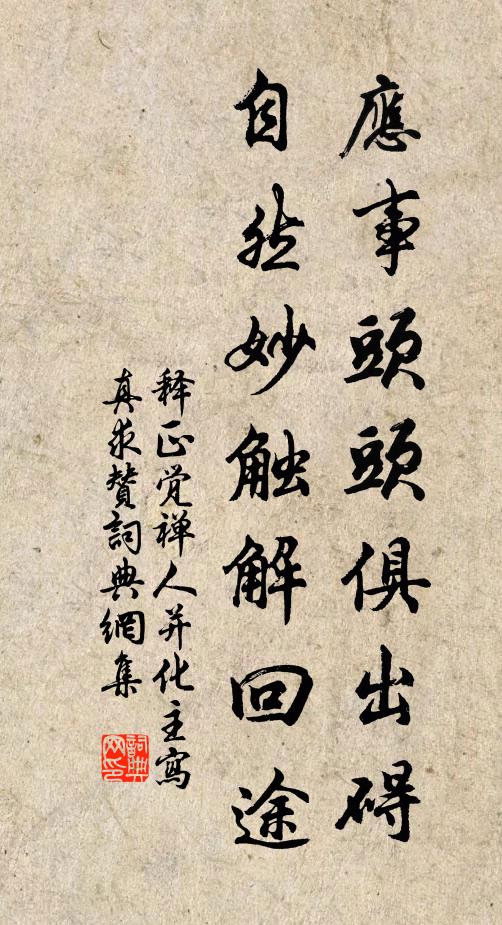 應事頭頭俱出碍
自然妙触解回途
释正觉禅人并化主寫
真求赞詞典網集
詞典
网印